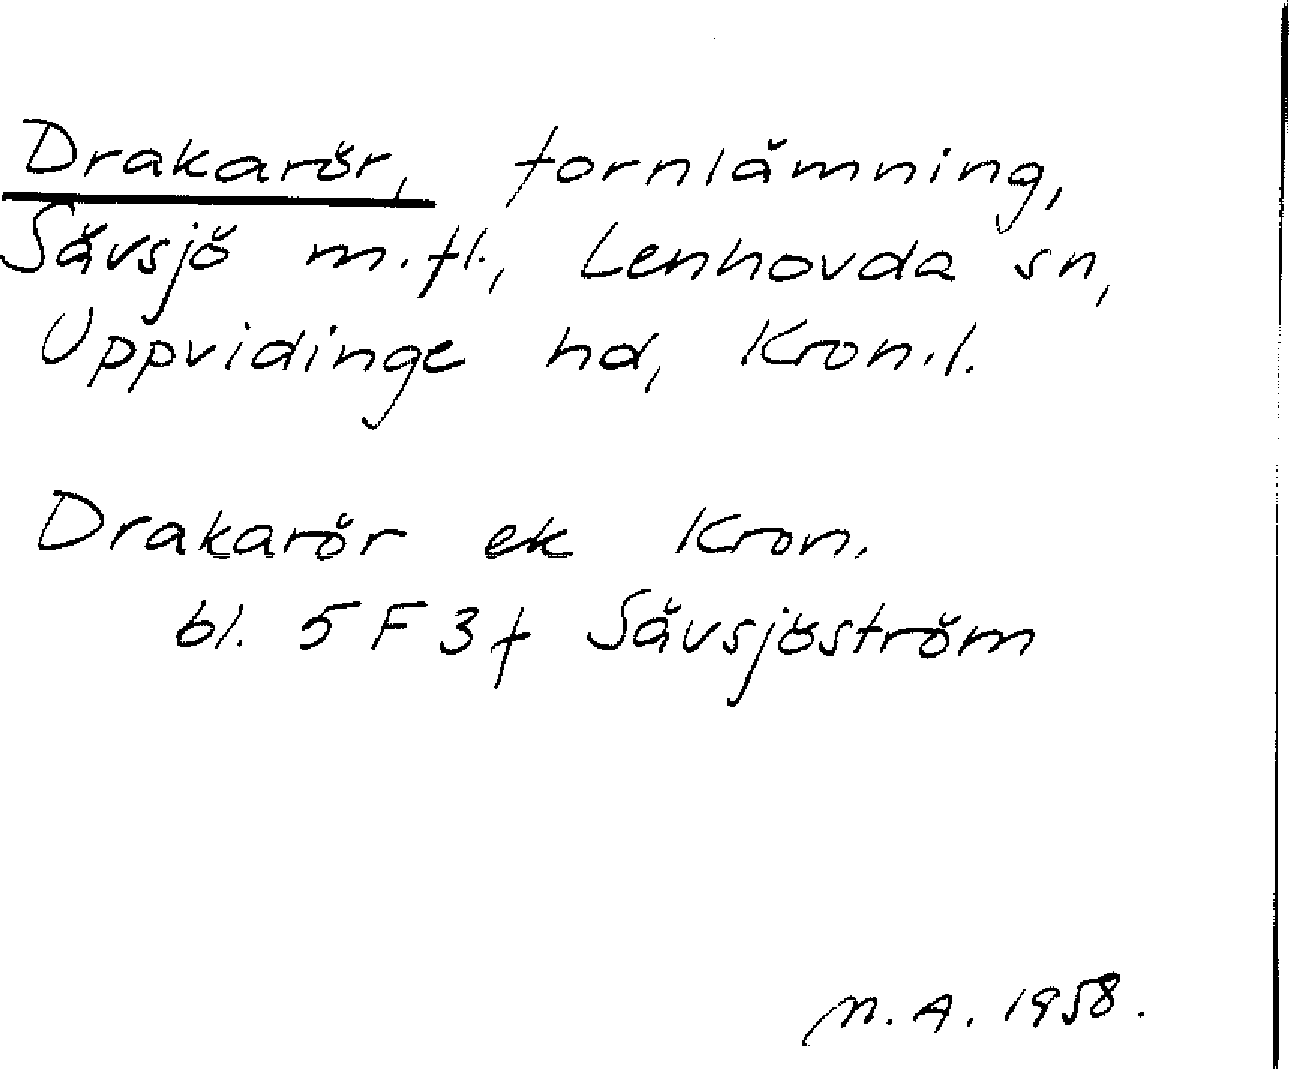 Drakarör, fornlämning,
Sävsjö m.fl., Lenhovda sn,
Uppvidinge hd, Kron.l.
Drakarör ek Kron.
bl. 5 F 3 f Sävsjöström
M.A. 1958.